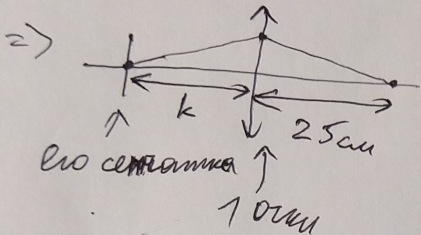 =>
k
25см
его сетчатка
1 очки